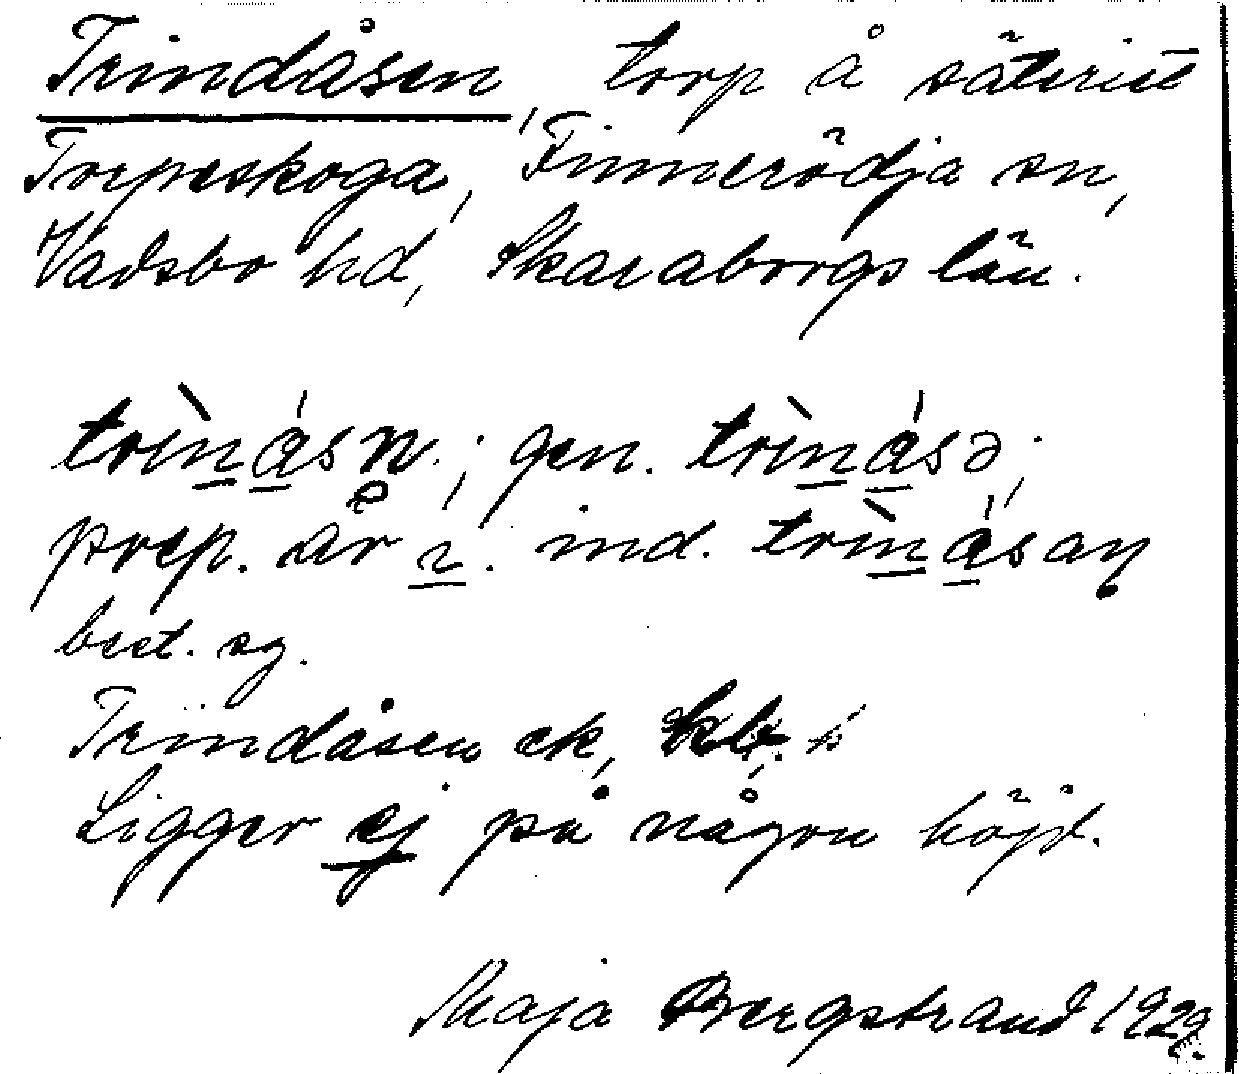 Trindåsen, torp å säteriet
Torpeskoga, Finnerödja sn,
Vadsbo hd, Skaraborgs län.
trìnåsn.; gen. trìnåsə;
prep. är i. ind. trìnåsaṇ
best. sg.
Trindåsen ek,
Ligger ej på någon höjd.
Maja Bergstrand 1929.